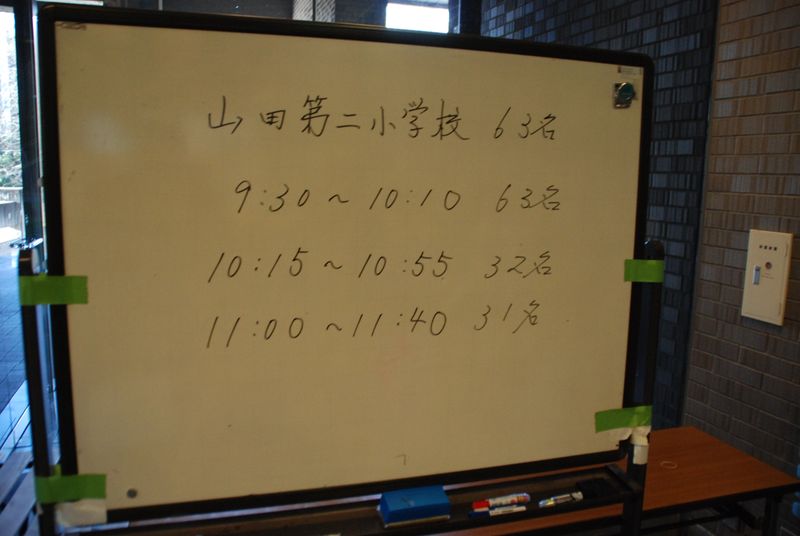 山田第二小学校 63名
9:30～10:10 63名
10:15～10:55 32名
11:00～11:40 31名